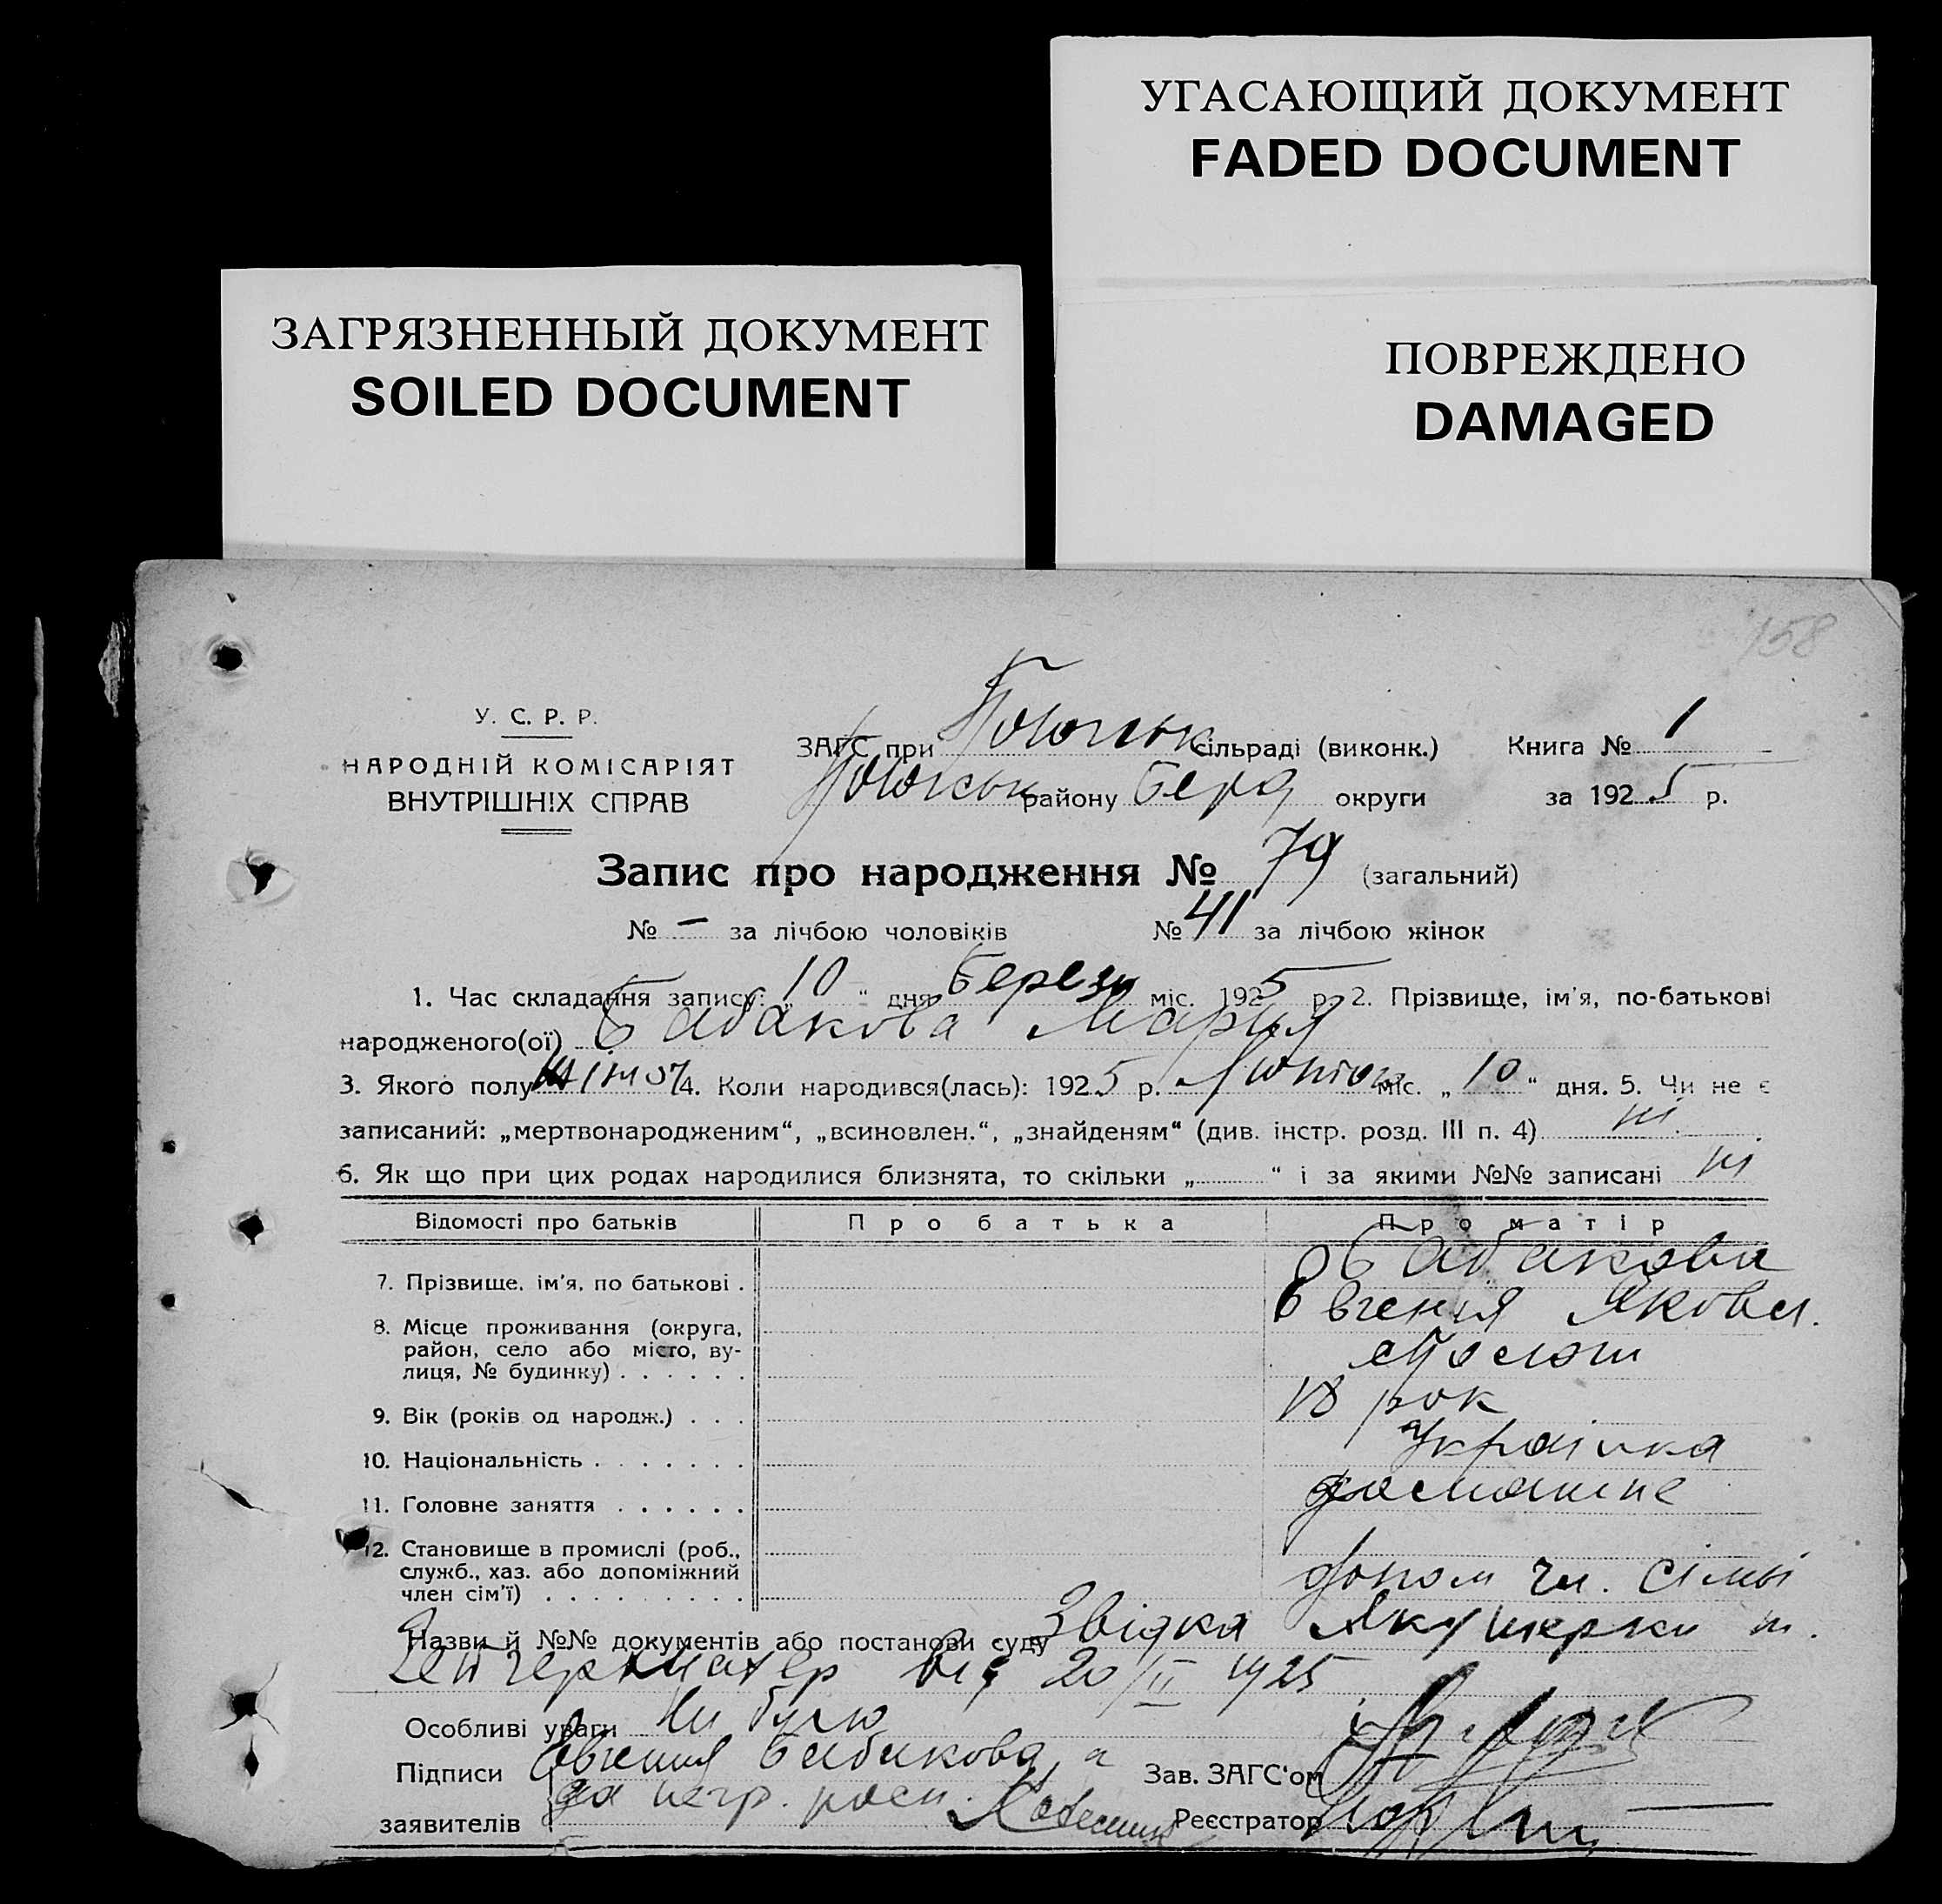 УГАСАЮЩИЙ ДОКУМЕНТ
FADED DOCUMENT
ЗАГРЯЗНЕННЫЙ ДОКУМЕНТ
SOILED DOCUMENT
ПОВРЕЖДЕНО
DAMAGED
158
У. С. Р. Р.
НАРОДНІЙ КОМІСАРІЯТ
ВНУТРІШНІХ СПРАВ
ЗАГС при Пологськ сільраді (виконк.) Книга № 1
Пологськ району Берд округи за 1925 р.
Запис про народження № 79 (загальний)
№ – за лічбою чоловіків № 41 за лічбою жінок
1. Час складання запису: „10“ дня Березн міс. 1925 р. 2. Прізвище, ім'я, по-батькові
народженого(ої) Бабакова Мария
3. Якого полу 4. Коли народився(лась): 1925 р. міс. „10“ дня. 5. Чи не є
записаний: „мертвонародженим“, „всиновлен.“, „знайденям“ (див. інстр. розд. III п. 4) ні.
6. Як що при цих родах народилися близнята, то скільки „ “ і за якими №№ записані ні
Відомості про батьків Про батька Про матір
7. Прізвище, ім'я, по батькові . Бабакова
Євгенія Яковл.
8. Місце проживання (округа,
район, село або місто, ву-
лиця, № будинку) . . . . . .
9. Вік (років од народж.) . . . 18 рок
10. Національність . . . . . . . Українка
11. Головне заняття . . . . . .
12. Становище в промислі (роб.,
служб., хаз. або допоміжний
член сім'ї) . . . . . . . . . допом чл. сімьі
Назви й №№ документів або постанови суду Звідка Якушерки
від 20/II 1925
Особливі уваги Ни було
Підписи Євгения Бабакова, а Зав. ЗАГС'ом
заявителів за негр. росп. Реєстратор